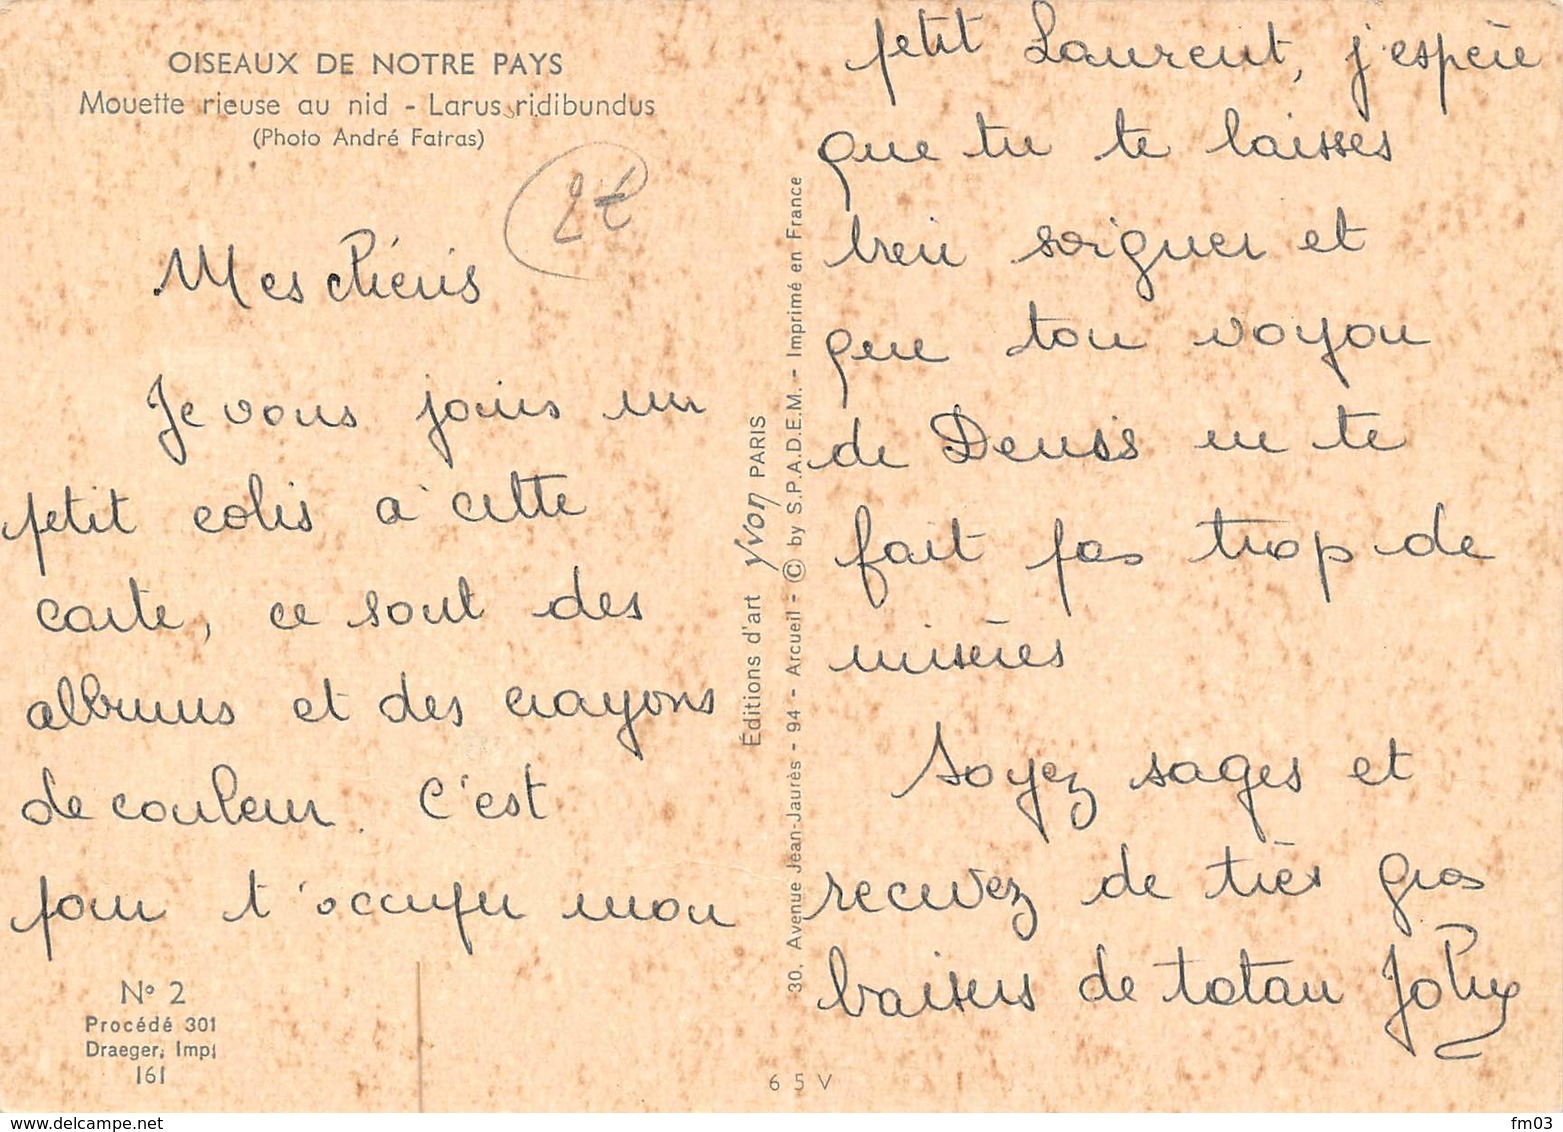 OISEAUX DE NOTRE PAYS
Mouette rieuse au nid - Larus ridibundus
(Photo André Fatras)
2€
Mes chéris
Je vous joins un
petit colis à cette
carte, ce sont des
albums et des crayons
de couleur. C'est
pour t'occuper mon
N° 2
Procédé 301
Draeger, Imp.
161
Éditions d'art yvon PARIS
30, Avenue Jean-Jaurès - 94 - Arcueil - © by S.P.A.D.E.M. - Imprimé en France
petit Laurent, j'espère
que tu te laisses
bien soigner et
que ton voyou
de Denis ne te
fait pas trop de
misères
Soyez sages et
recevez de très gros
baisers de tatan
6 5 V
delcampe.net
fm03